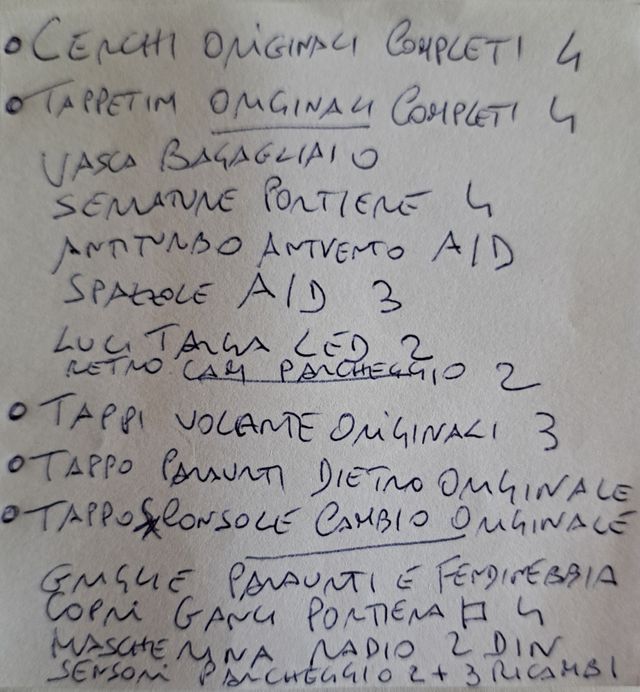 • CERCHI ORIGINALI COMPLETI 4
• TAPPETINI ORIGINALI COMPLETI 4
VASCA BAGAGLIAIO
SERRATURE PORTIERE 4
ANTITURBO ANTIVENTO A/D
SPAZZOLE A/D 3
LUCI TARGA LED 2
RETRO CAM PARCHEGGIO 2
• TAPPI VOLANTE ORIGINALI 3
• TAPPO PARAURTI DIETRO ORIGINALE
• TAPPO CONSOLE CAMBIO ORIGINALE
GRIGLIE PARAURTI E FENDINEBBIA
COPRI GANCI PORTIERA 4
MASCHERINA RADIO 2 DIN
SENSORI PARCHEGGIO 2 + 3 RICAMBI